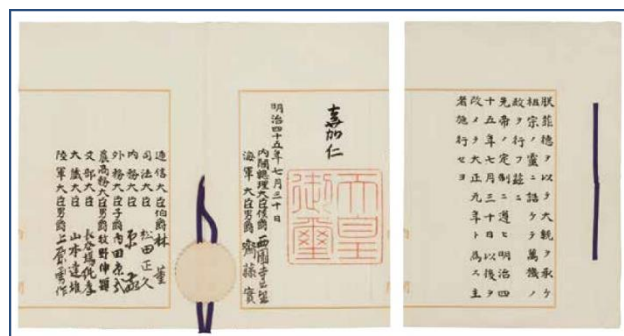 朕菲徳ヲ以テ大統ヲ承ケ
祖宗ノ靈ニ誥ケテ萬機ノ
政ヲ行フ茲ニ
先帝ノ定制ニ遵ヒ明治四
十五年七月三十日以後ヲ
改メテ大正元年ト為ス主
者施行セヨ
嘉仁
天皇御璽
明治四十五年七月三十日
内閣總理大臣侯爵 西園寺公望
海軍大臣男爵 齋藤實
遞信大臣伯爵 林董
司法大臣 松田正久
内務大臣 原敬
外務大臣子爵 内田康哉
農商務大臣男爵 牧野伸顯
文部大臣 長谷場純孝
大藏大臣 山本達雄
陸軍大臣男爵 上原勇作